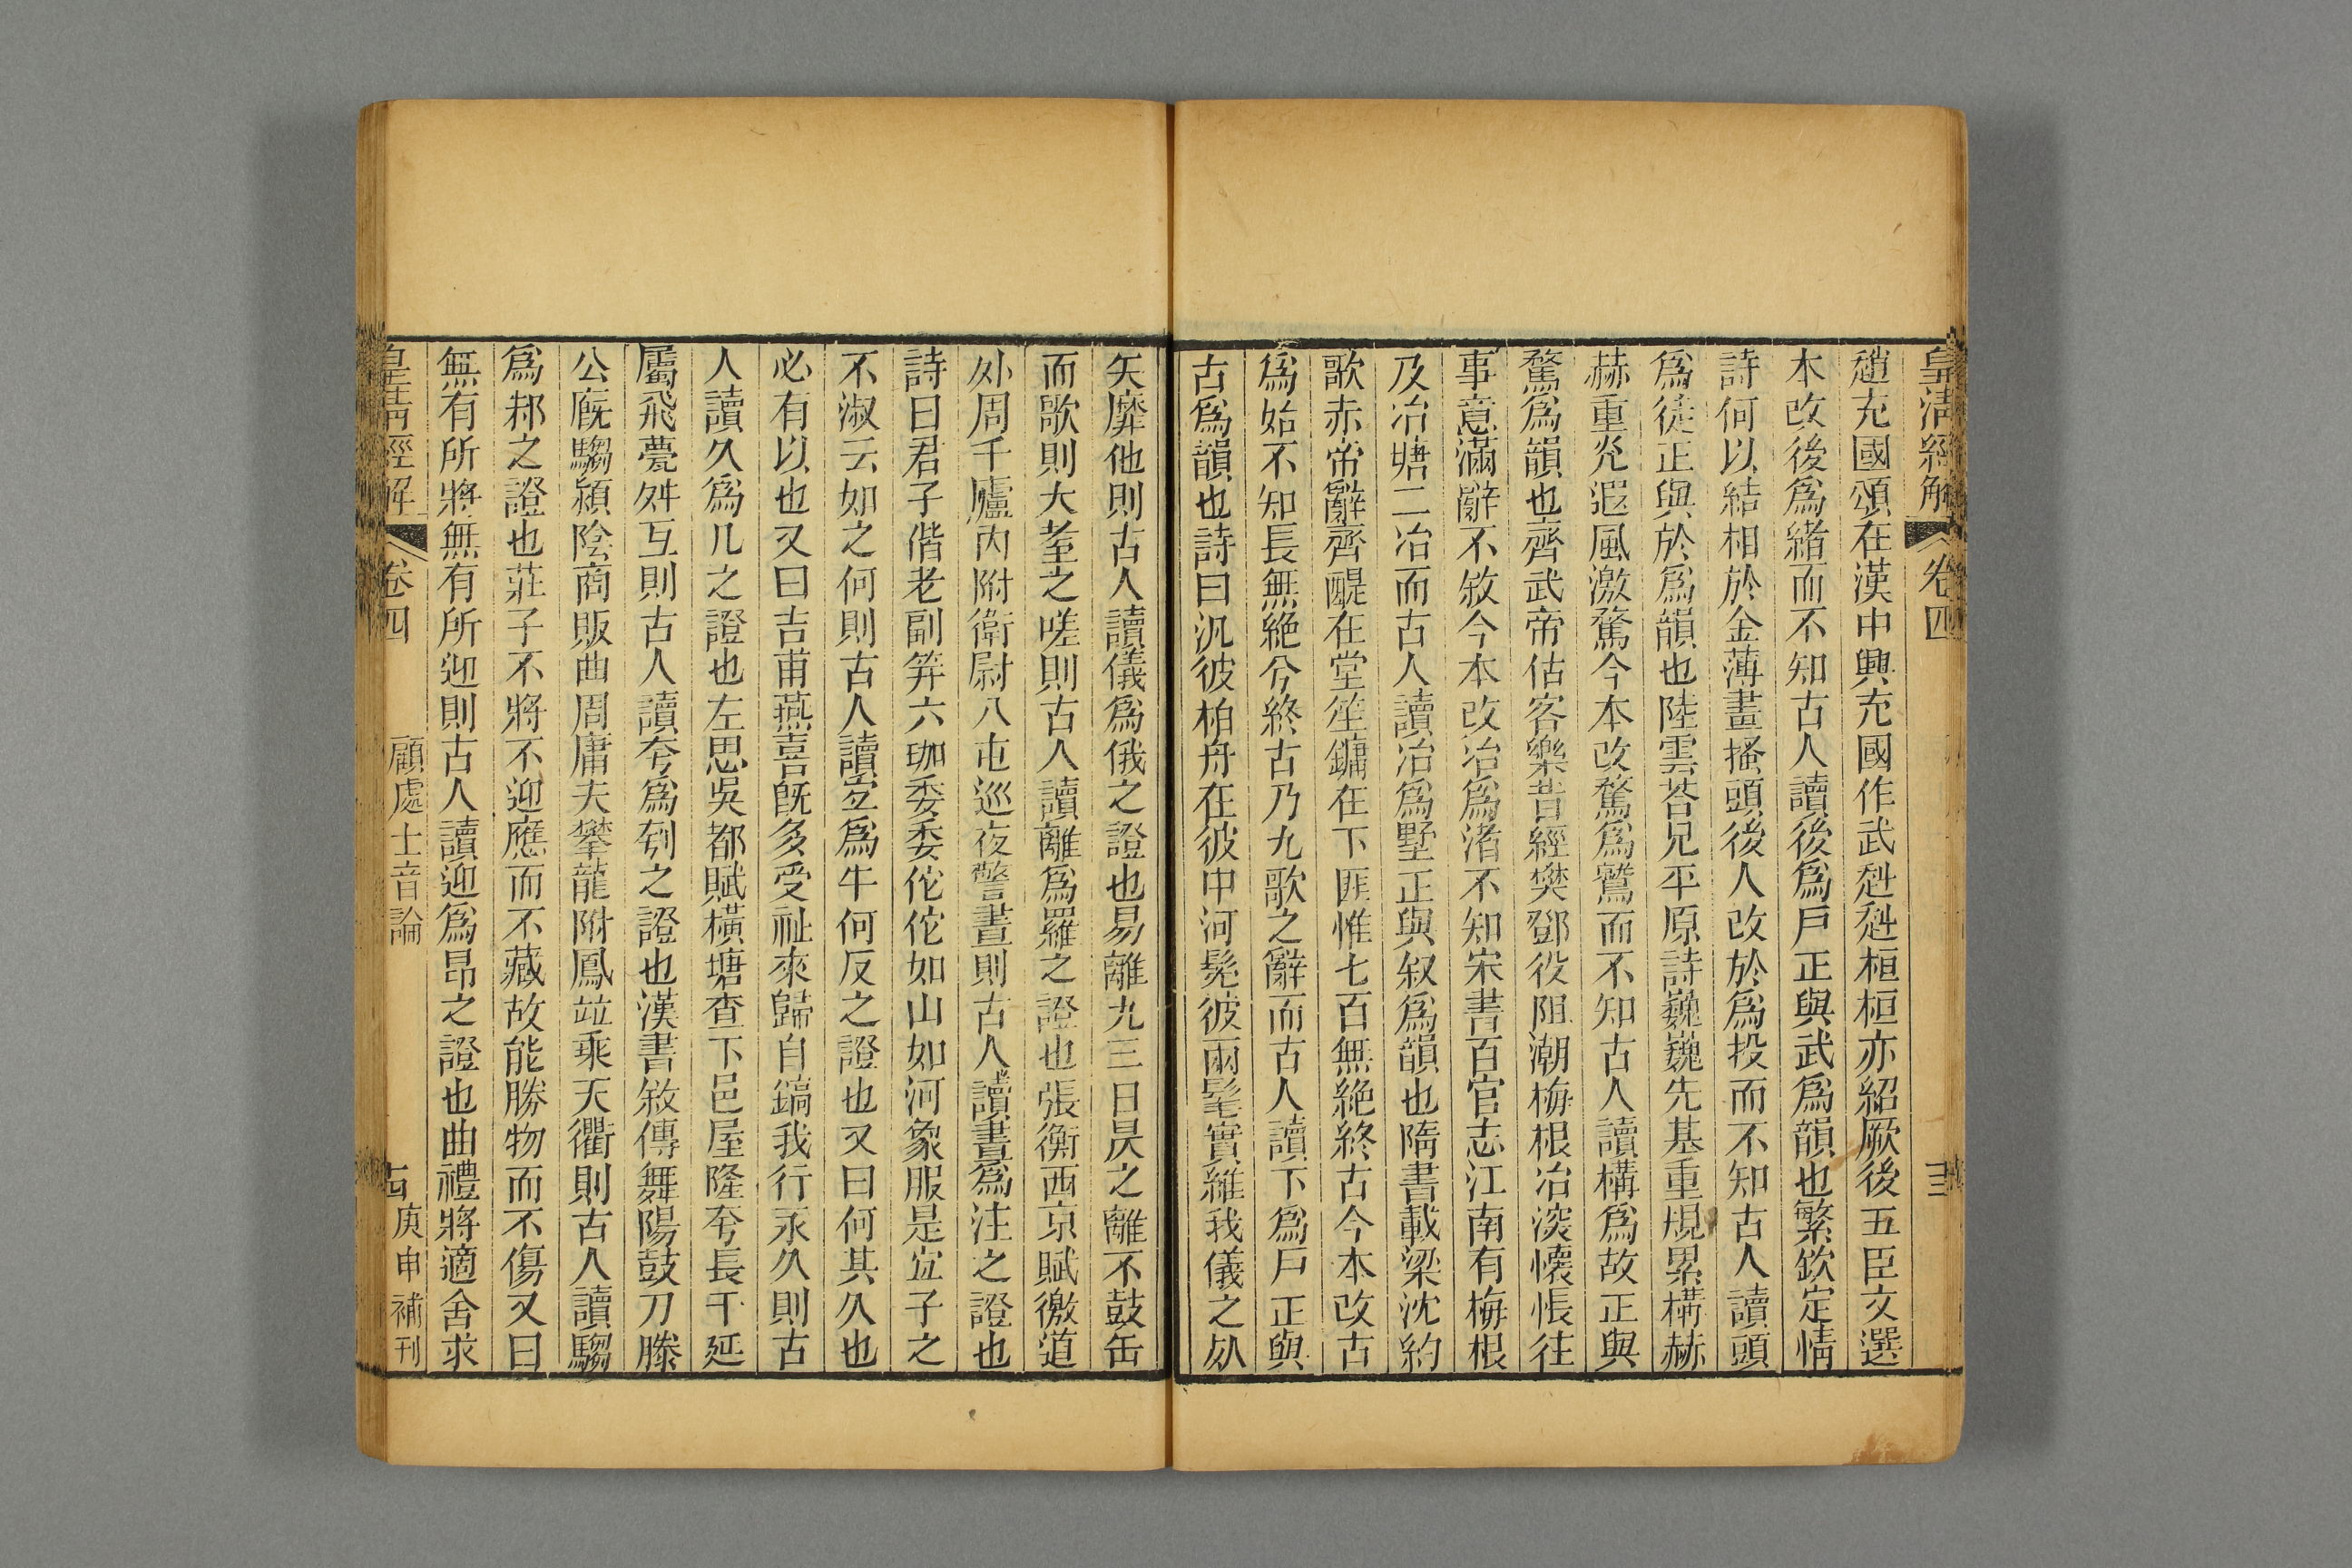 皇清經解 卷四 十三
趙充國頌在漢中興充國作武赳赳桓桓亦紹厥後五臣文選
本改後爲緒而不知古人讀後爲戶正與武爲韻也繁欽定情
詩何以結相於金薄畫搔頭後人改於爲投而不知古人讀頭
爲徒正與於爲韻也陸雲荅兄平原詩巍巍先基重規累構赫
赫重光遐風激騖今本改騖爲鶩而不知古人讀構爲故正與
騖爲韻也齊武帝估客樂昔經樊鄧役阻潮梅根冶深懷悵往
事意滿辭不敘今本改冶爲渚不知宋書百官志江南有梅根
及冶塘二冶而古人讀冶爲墅正與叙爲韻也隋書載梁沈約
歌赤帝辭齊醍在堂笙鏞在下匪惟七百無絕終古今本改古
爲始不知長無絕兮終古乃九歌之辭而古人讀下爲戶正與
古爲韻也詩曰汎彼柏舟在彼中河髧彼兩髦實維我儀之𣦵
矢靡他則古人讀儀爲俄之證也易離九三日昃之離不鼓缶
而歌則大耋之嗟則古人讀離爲羅之證也張衡西京賦徼道
外周千廬內附衛尉八屯巡夜警晝則古人讀晝爲注之證也
詩曰君子偕老副筓六珈委委佗佗如山如河象服是宜子之
不淑云如之何則古人讀宜爲牛何反之證也又曰何其久也
必有以也又曰吉甫燕喜旣多受祉來歸自鎬我行永久則古
人讀久爲几之證也左思吳都賦橫塘查下邑屋隆夸長干延
屬飛甍舛互則古人讀夸爲刳之證也漢書敘傳舞陽鼓刀滕
公廐騶潁陰商販曲周庸夫攀龍附鳳竝乘天衢則古人讀騶
爲邾之證也莊子不將不迎應而不藏故能勝物而不傷又曰
無有所將無有所迎則古人讀迎爲昂之證也曲禮將適舍求
皇清經解 卷四 顧處士音論 十四 庚申補刊